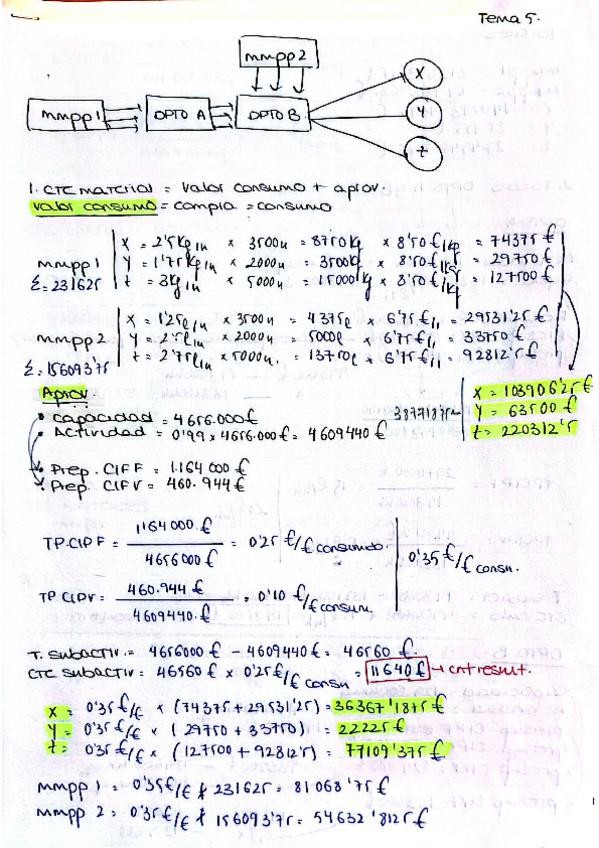 Tema 5.
mmpp2
mmpp1
DPTO A
DPTO B
X
Y
Z
1. CTE material = valor consumo + aprov.
valor consumo = compra = consumo
mmpp1
Σ = 231625
X = 2'5 kg/u × 3500u = 8750 kg × 8'50 €/kg = 74375 €
Y = 1'75 kg/u × 2000u = 3500 kg × 8'50 €/kg = 29750 €
Z = 3 kg/u × 5000u = 15000 kg × 8'50 €/kg = 127500 €
mmpp2
Σ = 156093'75
X = 1'25 l/u × 3500u = 4375 l × 6'75 €/l = 29531'25 €
Y = 2'5 l/u × 2000u = 5000 l × 6'75 €/l = 33750 €
Z = 2'75 l/u × 5000u. = 13750 l × 6'75 €/l = 92812'5 €
Aprov.
• Capacidad = 4656.000 €
• Actividad = 0'99 × 4656.000 € = 4609440 €
387718'75
X = 103906'25 €
Y = 63500 €
Z = 220312'5
Prep. CIFF = 1.164 000 €
Prep. CIFV = 460.944 €
TP.CIFF = 1164 000. € / 4656000 € = 0'25 €/€ consumido.
TP CIFV = 460.944 € / 4609440. € = 0'10 €/€ consum.
0'35 €/€ consum.
T. Subactiv. = 4656000 € - 4609440 € = 46560 €.
CTE subactiv = 46560 € × 0'25 €/€ consum = 11640 € → cnt result.
X = 0'35 €/€ × (74375 + 29531'25) = 36367'1875 €
Y = 0'35 €/€ × (29750 + 33750) = 22225 €
Z = 0'35 €/€ × (127500 + 92812'5) = 77109'375 €
mmpp 1 = 0'35 €/€ × 231625 = 81068'75 €
mmpp 2 = 0'35 €/€ × 156093'75 = 54632'8125 €